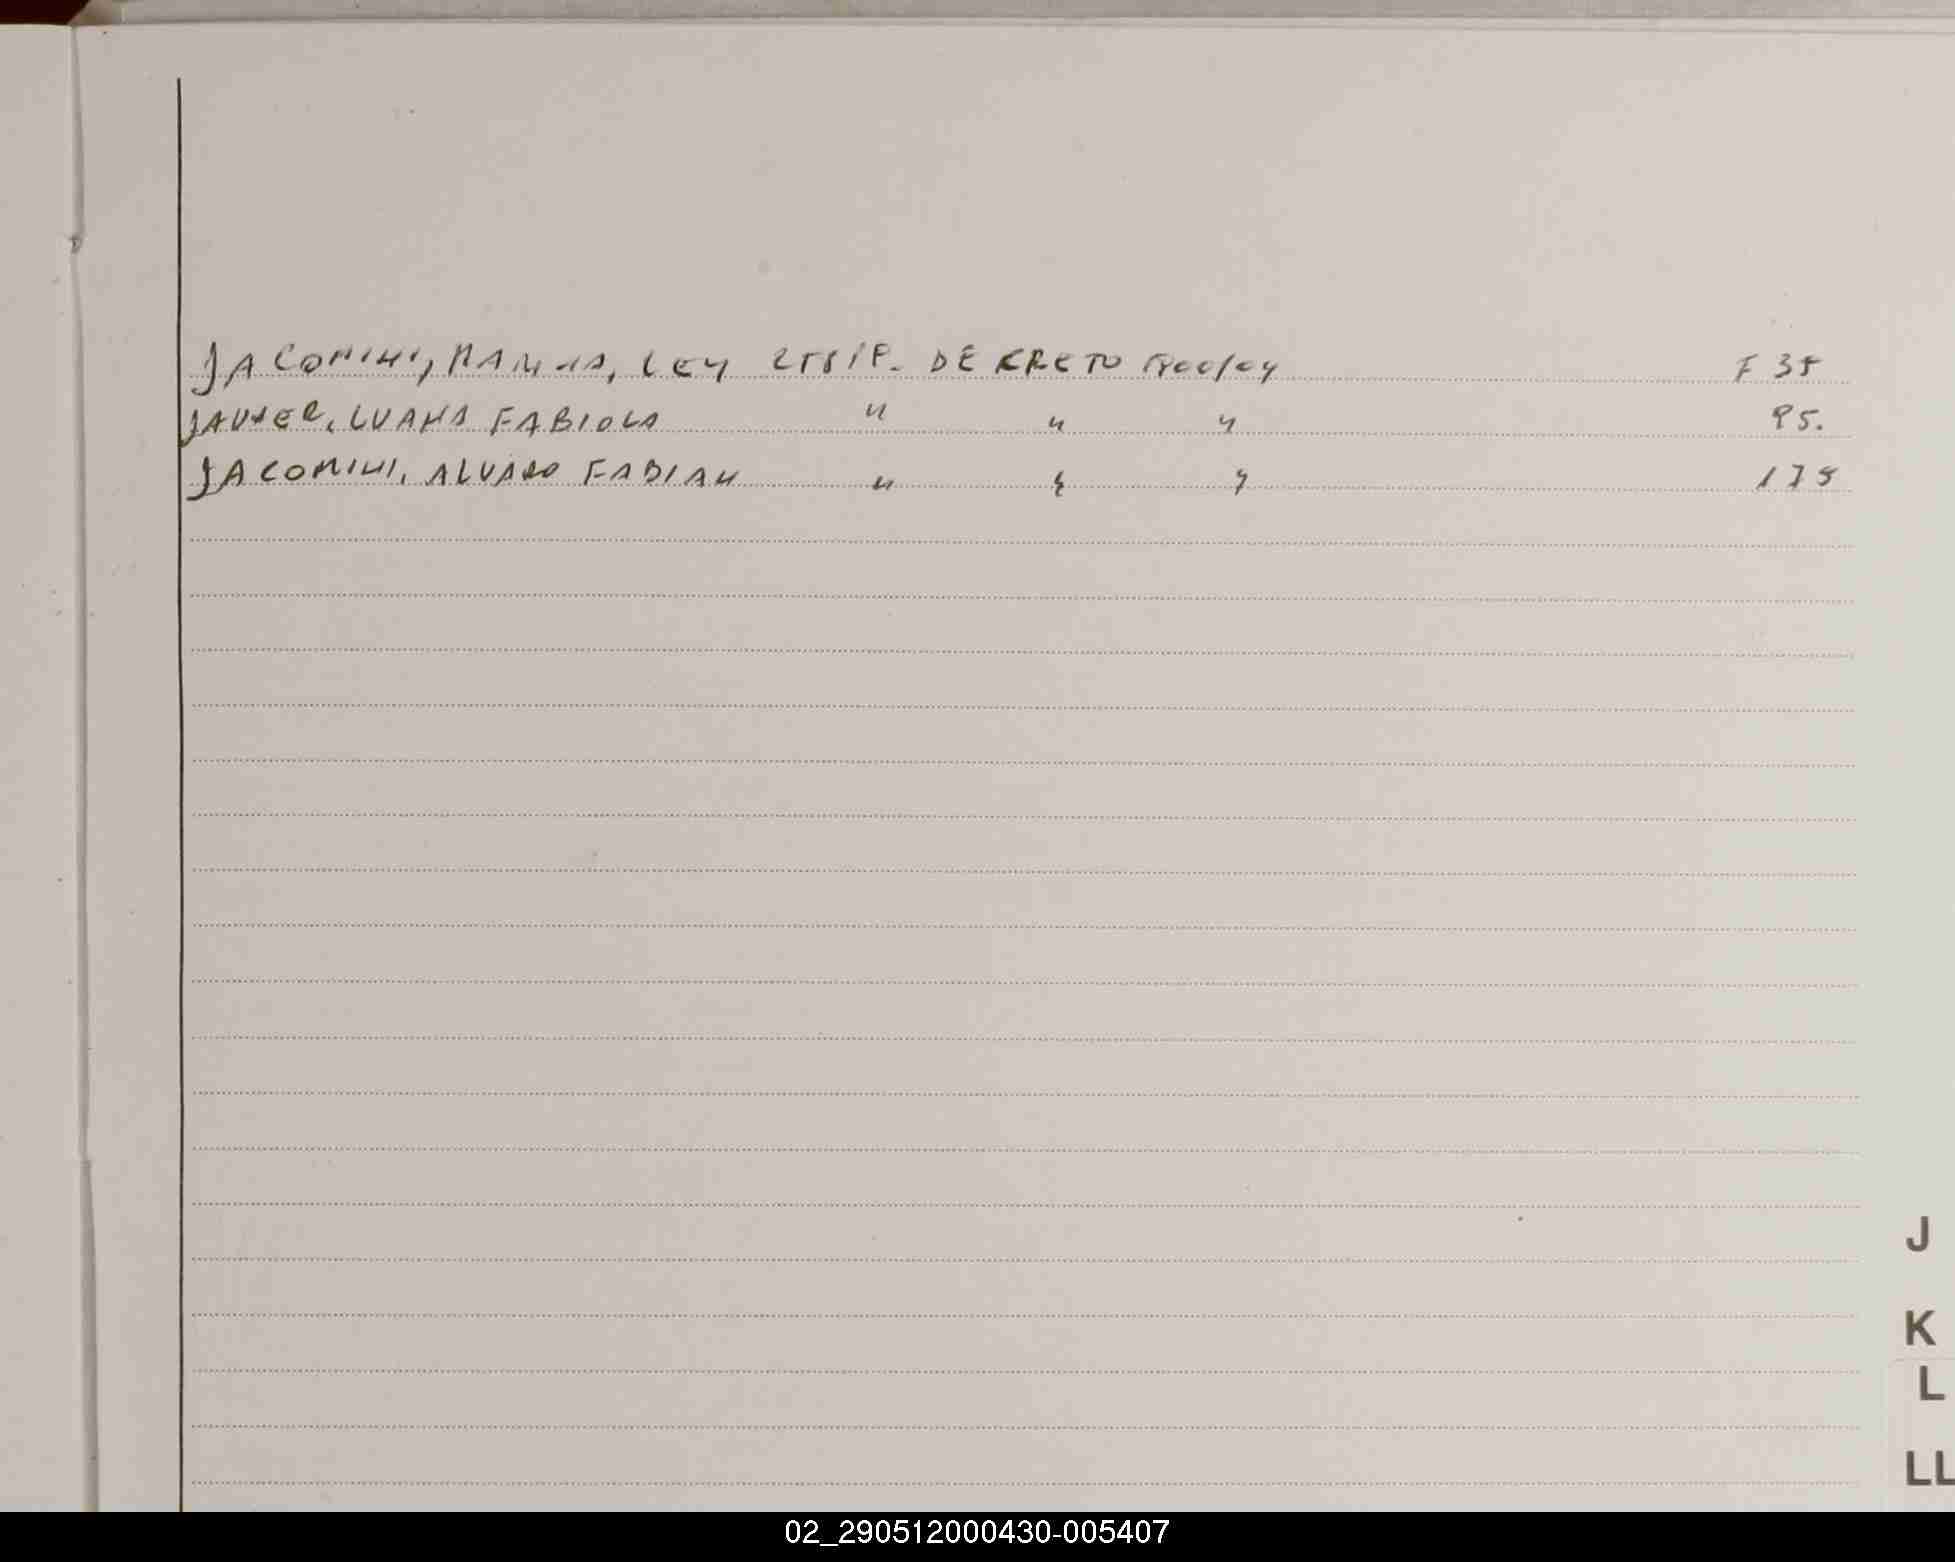 JACOMINI, MARINA, LEY 25819. DECRETO F 35
JAVIER, LUANA FABIOLA " " " 95.
JACOMINI, ALVARO FABIAN " " " 175
J
K
L
LL
02_290512000430-005407